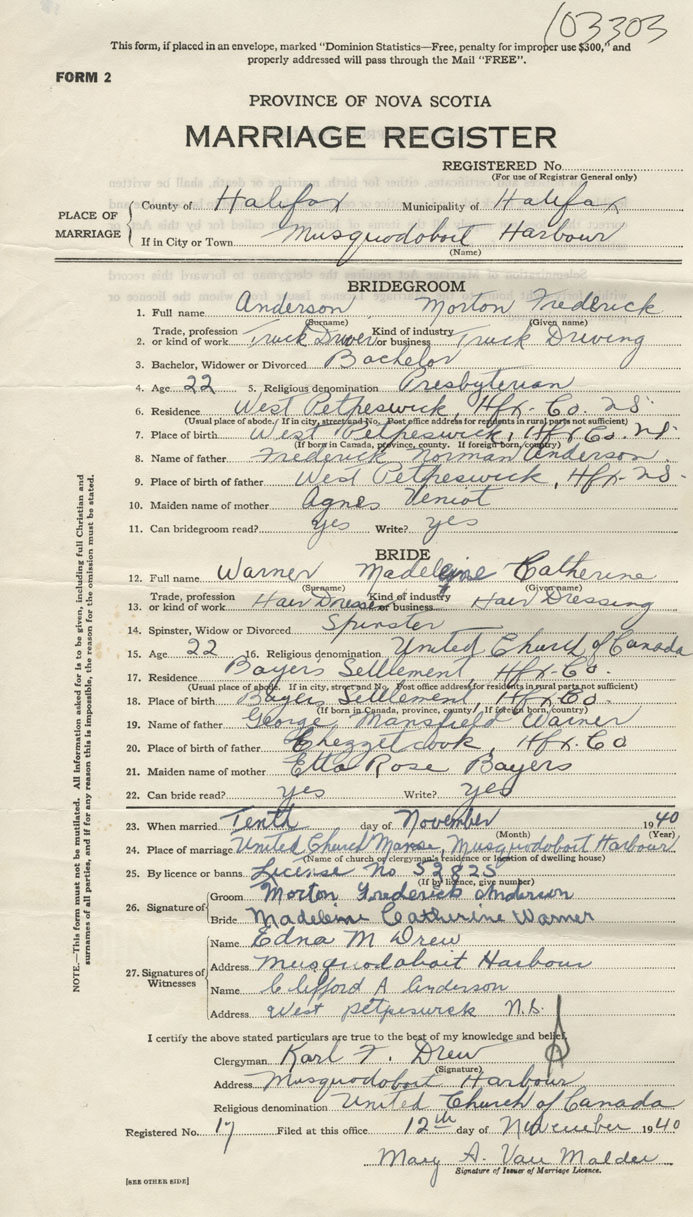 103303
This form, if placed in an envelope, marked "Dominion Statistics—Free, penalty for improper use $300," and
properly addressed will pass through the Mail "FREE".
FORM 2
PROVINCE OF NOVA SCOTIA
MARRIAGE REGISTER
REGISTERED No.
(For use of Registrar General only)
PLACE OF MARRIAGE
County of Halifax Municipality of Halifax
If in City or Town Musquodoboit Harbour
(Name)
BRIDEGROOM
1. Full name Anderson Morton Frederick
(Surname) (Given name)
2. Trade, profession or kind of work Truck Driver Kind of industry or business Truck Driving
3. Bachelor, Widower or Divorced Bachelor
4. Age 22 5. Religious denomination Presbyterian
6. Residence West Petpeswick, Hfx. Co. NS.
(Usual place of abode. If in city, street and No. Post office address for residents in rural parts not sufficient)
7. Place of birth West Petpeswick, Hfx. Co. NS.
(If born in Canada, province, county. If foreign born, country)
8. Name of father Frederick Norman Anderson
9. Place of birth of father West Petpeswick, Hfx. NS.
10. Maiden name of mother Agnes Veniot
11. Can bridegroom read? yes Write? yes
BRIDE
12. Full name Warner Madeleine Catherine
(Surname) (Given name)
13. Trade, profession or kind of work Hair Dresser Kind of industry or business Hair Dressing
14. Spinster, Widow or Divorced Spinster
15. Age 22 16. Religious denomination United Church of Canada
17. Residence Bayers Settlement, Hfx. Co.
(Usual place of abode. If in city, street and No. Post office address for residents in rural parts not sufficient)
18. Place of birth Bayers Settlement, Hfx. Co.
(If born in Canada, province, county. If foreign born, country)
19. Name of father George Mansfield Warner
20. Place of birth of father Chezzetcook, Hfx. Co
21. Maiden name of mother Etta Rose Bayers
22. Can bride read? yes Write? yes
23. When married Tenth day of November 1940
(Month) (Year)
24. Place of marriage United Church Manse, Musquodoboit Harbour
(Name of church or clergyman's residence or location of dwelling house)
25. By licence or banns License No 52825
(If by licence, give number)
26. Signature of
Groom Morton Frederick Anderson
Bride Madeleine Catherine Warner
27. Signatures of Witnesses
Name Edna M Drew
Address Musquodoboit Harbour
Name Clifford A Anderson
Address West Petpeswick N.S.
I certify the above stated particulars are true to the best of my knowledge and belief.
Clergyman Karl F. Drew
(Signature)
Address Musquodoboit Harbour
Religious denomination United Church of Canada
Registered No. 17 Filed at this office 12th day of November 1940
Mary A. Van Malder
Signature of Issuer of Marriage Licence.
[SEE OTHER SIDE]
NOTE.—This form must not be mutilated. All information asked for is to be given, including full Christian and
surnames of all parties, and if for any reason this is impossible, the reason for the omission must be stated.